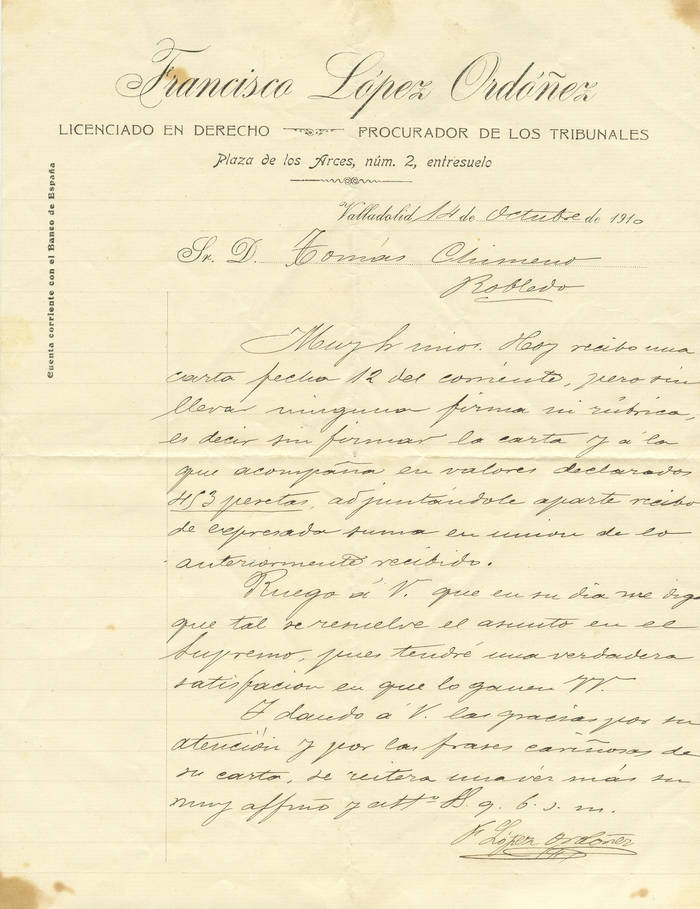 Francisco López Ordóñez
LICENCIADO EN DERECHO PROCURADOR DE LOS TRIBUNALES
Plaza de los Arces, núm. 2, entresuelo
Cuenta corriente con el Banco de España
Valladolid 14 de Octubre de 1910
Sr. D. Tomás Chimeno
Robledo
Muy Sr mio: Hoy recibo una
carta fecha 12 del corriente, pero sin
llevar ninguna firma ni rúbrica,
es decir sin firmar la carta y á la
que acompaña en valores declarados
453 pesetas, adjuntándole aparte recibo
de expresada suma en union de lo
anteriormente recibido.
Ruego á V. que en su dia me diga
que tal se resuelve el asunto en el
Supremo, pues tendré una verdadera
satisfacion en que lo ganen VV.
Y dando á V. las gracias por su
atención y por las frases cariñosas de
su carta, se reitera una vez más su
muy affmo y atto S. q. b. s. m.
F López Ordóñez